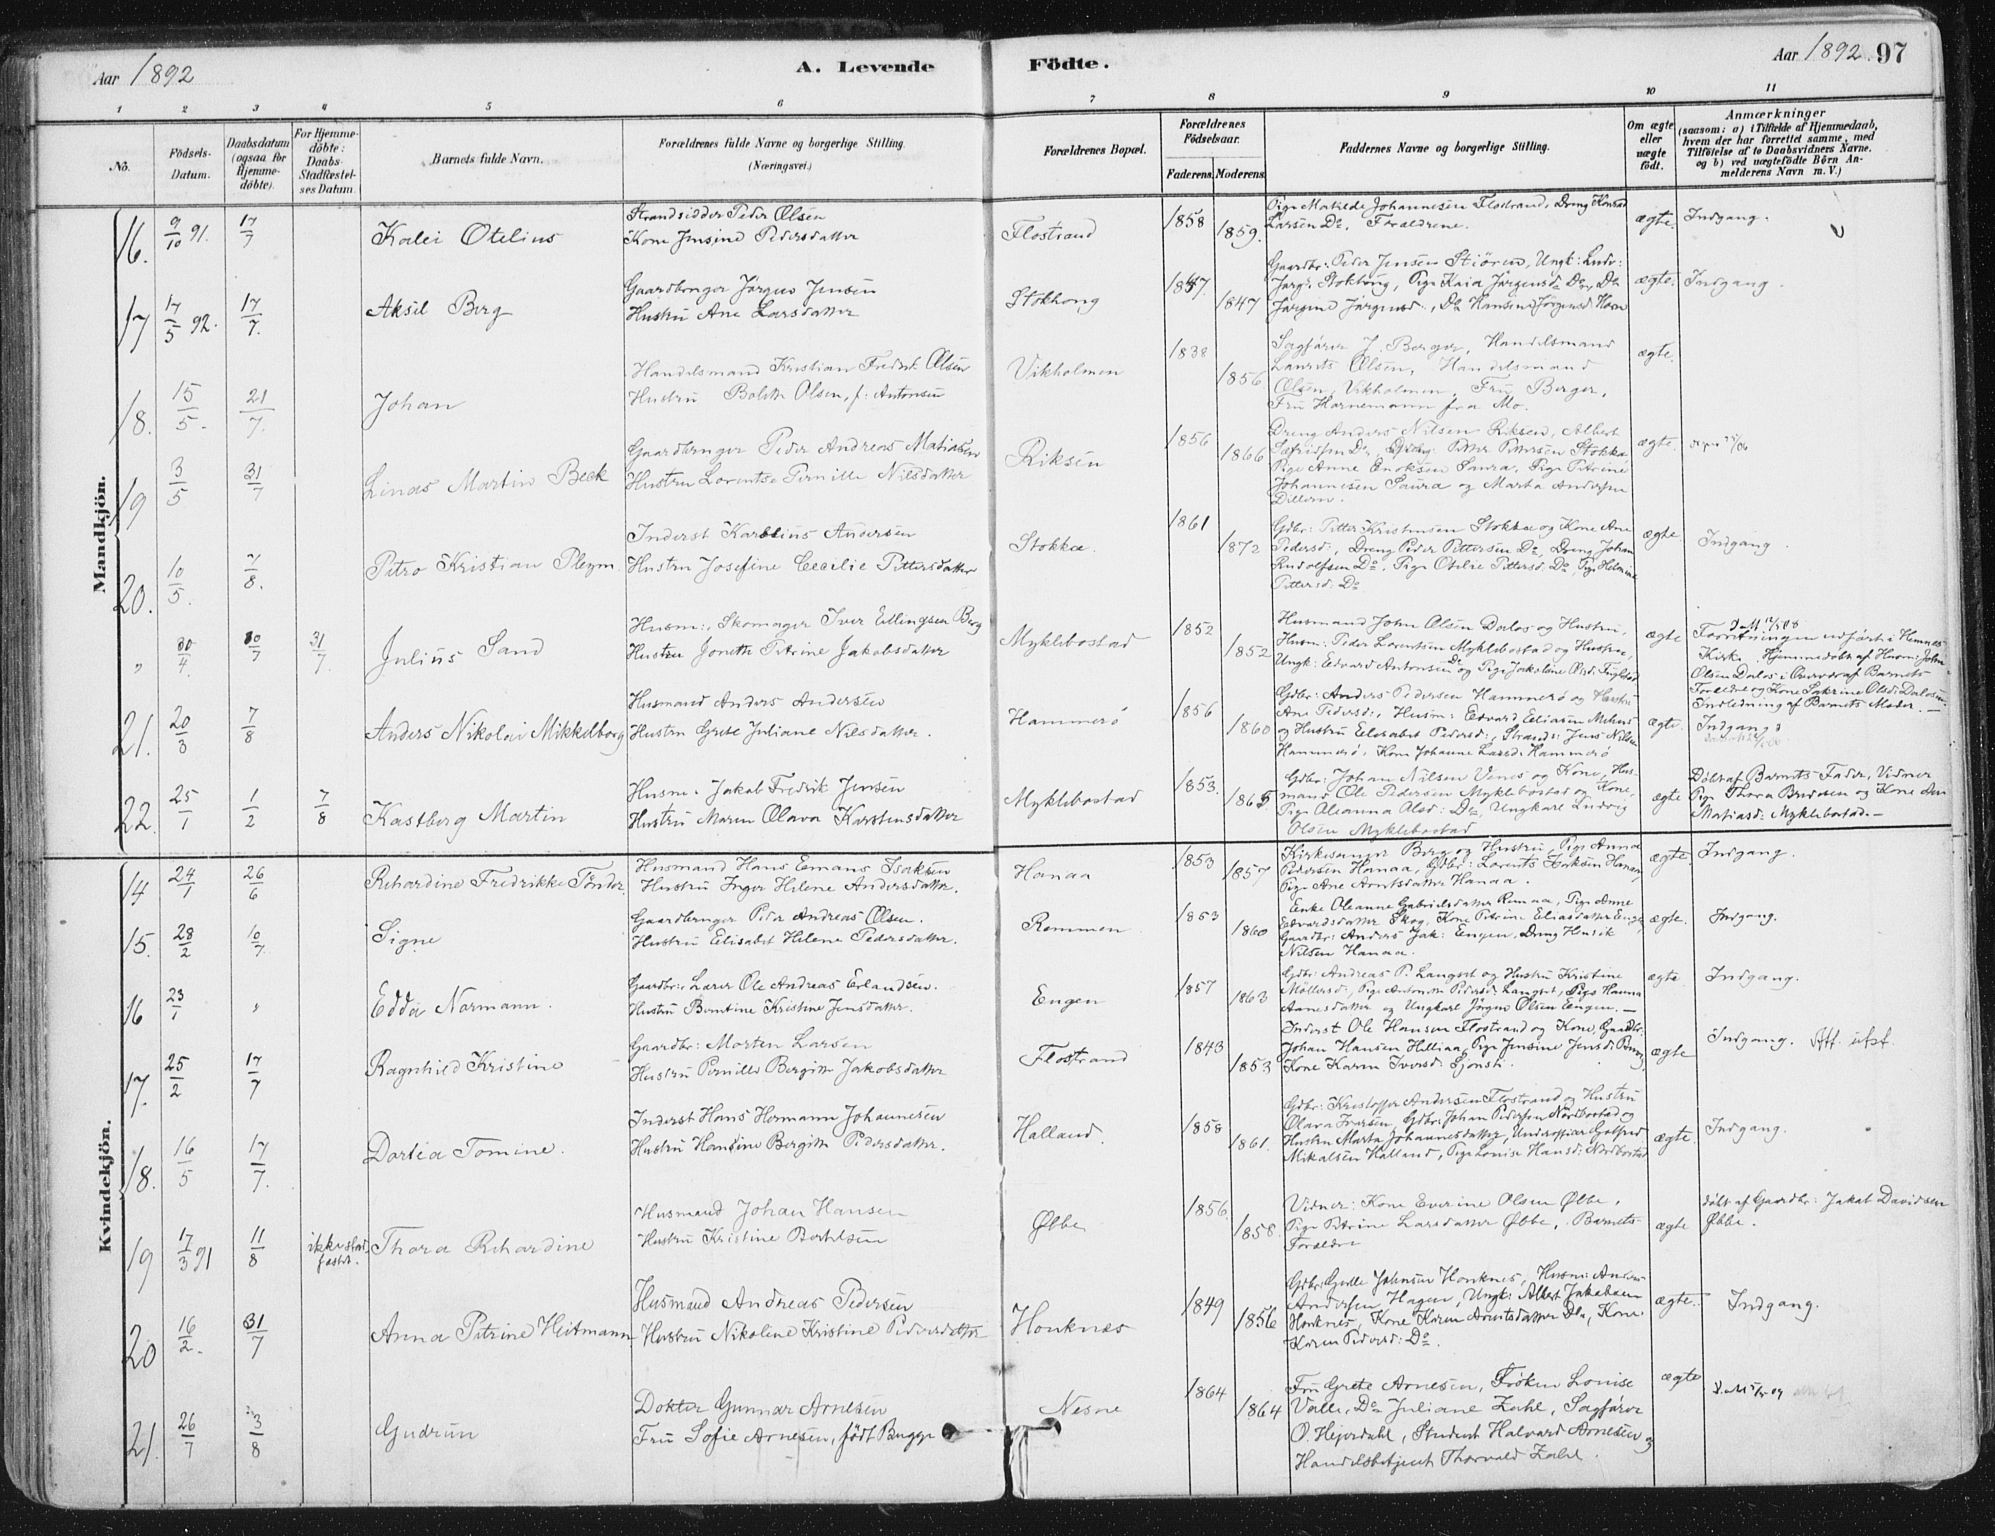 Aar 1892
A. Levende
Födte.
Aar 1892. 97
1 2 3 4 5 6 7 8 9 10 11
No.
Födsels-Datum.
Daabsdatum (ogsaa for Hjemme-døbte).
For Hjemme-døbte: Daabs-Stadfæstel-ses Datum.
Barnets fulde Navn.
Forældrenes fulde Navne og borgerlige Stilling.
(Næringsvei.)
Forældrenes Bopæl.
Forældrenes Födselsaar.
Faderens. Moderens.
Faddernes Navne og borgerlige Stilling.
Om ægte eller uægte födt.
Anmærkninger
(saasom: a) i Tilfælde af Hjemmedaab, hvem der har forrettet samme, med Tilföielse af to Daabsvidners Navne. og b) ved uægtefödte Börn Anmelderens Navn m. V.)
Mandkjön.
16. 9/10 91. 17/7 Kalei Otelius
Strandsidder Peder Olsen
Kone Jensine Pedersdatter
Flostrand 1858 1859.
Pige Matilde Johannesen Flostrand, Dreng Konrad
Larsen Do, Forældrene.
ægte. Indgang.
17 17/5 92. 17/7. Aksel Berg
Gaardbruger Jörgen Jensen
Hustru Ane Larsdatter
Stokhong 1847 1847
Gaardbr: Peder Jensen Stiören, Ungk: Ludv:
Jörg: Stokhong, Pige Kaia Jörgensd: Do, Do
Jörgine Jörgensd., Do Hansine Jörgensd:
ægte. Indgang.
18. 15/5. 21/7. Johan
Handelsmand Kristian Fredrik Olsen
Hustru Bolette Olsen, f: Antonsen
Vikholmen 1838 1856
Sagfører J. Berger, Handelsmand
Laurits Olsen, Handelsmand
Olsen, Vikholmen, Fru Berger,
Fru Hornemann fra Mo.
ægte.
19 3/5 31/7 Linas Martin Beck
Gaardbruger Peder Andreas Matiasen
Hustru Lorentse Pernille Nilsdatter
Riksen 1856 1866
Dreng Anders Nilsen Riksen, Albert
Sæfridsen Do, Petter Pettersen Stokka
Pige Anne Enoksen Saura, Pige Petrine
Johannesen Saura og Marta Andersen
Dillern.
ægte.
20. 10/5. 7/8. Petro Kristian Pleym.
Inderst Karelius Andersen
Hustru Josefine Cecilie Pettersdatter
Stokka. 1861 1872
Gdbr: Petter Kristensen Stokka og Kone Ane
Pedersd:, Dreng Peder Pettersen Do, Dreng Johan
Rudolfsen Do. Pige Otelie Pettersd: Do, Pige Helmine
Pettersd: Do
ægte Indgang.
" 30/4. 10/7 31/7. Julius Sand
Husm:, Skomager Iver Ellingsen Berg
Hustru Joneth Petrine Jakobsdatter
Myklebostad 1852 1852
Husmand John Olsen Dalos og Hustru,
Husm: Peder Lorentsen Myklebostad og Hustru,
Ungk: Edvard Antonsen Do og Pige Jakobine Olsd:
ægte
Forretningen udført i Hemnes
Kirke. Hjemmedöbt af Husm: John
Olsen Dalos i Overvær af Barnets
Forældre og Kone Sakrine Olsd: Dalosen
Indledning af Barnets Moder. —
21. 20/3 7/8 Anders Nikolai Mikkelborg
Husmand Anders Andersen
Hustru Grete Juliane Nilsdatter.
Hammerö 1856 1860
Gdbr: Anders Pedersen Hammerö og Hustru
Ane Pedersd:, Husm: Edvard Eliasen
og Hustru Elisabet Pedersd:, Strands: Jens Nilsen
Hammerö, Kone Johanne Larsd: Hammerö
ægte. Indgang
22. 25/1 1/2 7/8 Kastberg Martin
Husm. Jakob Fredrik Jensen
Hustru Maren Olava Karstensdatter
Myklebostad 1853. 1865
Gdbr: Johan Nilsen Venes og Kone, Hus-
mand Ole Pedersen Myklebostad og Kone,
Pige Oleanna Olsd: Do, Ungkare Ludvig
Olsen Myklebostad
ægte
Döbt af Barnets Fader, Vidner
Pige Thora Bredesen og Kone
Matiasd: Myklebostad. —
Kvindekjön.
14 24/1 26/6 Rikardine Fredrikke Tönder.
Husmand Hans Emans Isaksen
Hustru Inger Helene Andersdatter.
Hanaa 1853 1857
Kirkesanger Berg og Hustru, Pige Anna
Pedersen Hanaa, Gdbr: Lorents Eriksen Hanaa,
Pige Ane Arntsdatter Hanaa.
ægte Indgang.
15. 28/2 10/7. Signe
Gaardbruger Peder Andreas Olsen.
Hustru Elisabet Helene Pedersdatter.
Remmen 1853 1860
Enke Oleanne Gabrielsdatter Remaa, Pige Anne
Edvardsdatter Skog, Kone Petrine Eliasdatter Engen,
Gaardbr: Anders Jak: Engen, Dreng Henrik
Nilsen Hanaa.
ægte. Indgang.
16 23/1 " Edda Normann.
Gaardbr: Lærer Ole Andreas Erlandsen.
Hustru Berntine Kristine Jensdatter.
Engen 1857 1863
Gdbr: Andreas P. Langset og Hustru Kristine
Möllersd:, Pige Antonette Pedersd: Langset, Pige Hanna
Aanesdatter og Ungkarl Jörgen Olsen Engen. —
ægte Indgang.
17. 25/2 17/7 Ragnhild Kristine
Gaardbr: Morten Larsen
Hustru Pernille Bergitte Jakobsdatter
Flostrand 1843 1853
Inderst Ole Hansen Flostrand og Kone, Gaardbr:
Johan Hansen Hilliaa, Pige Jensine Jensd:
Kone Karen Iversd: Sjonsh.
ægte Indgang. Att. utst.
18. 16/5 17/7. Dortea Tomine.
Inderst Hans Hermann Johannesen
Hustru Hansine Bergitte Pedersdatter.
Halland. 1858 1861.
Gdbr: Kristoffer Andersen Flostrand og Hustru
Olava Iversen, Gdbr: Johan Pedersen Nordbostad og
Hustru Marta Johannesdatter, Underoffiser Gotfred
Mikalsen Halland, Pige Louise Hansd: Nordbostad
ægte. Indgang.
19 17/3 91 11/8 ikke stad-fæstet. Thora Rikardine
Husmand Johan Hansen
Hustru Kristine Bertelsen
Øbbe 1856. 1858.
Vidner: Kone Everine Olsen Øbbe,
Pige Petrine Larsdatter Øbbe, Barnets
Forældre
ægte
Döbt af Gaardbr: Jakob Davidsen
Øbbe.
20 16/2. 31/7 Anna Petrine Heitmann
Husmand Andreas Pedersen
Hustru Nikoline Kristine Pedersdatter
Honknes 1849 1856
Gdbr: Johnsen Honknes, Husm: Anders
Andersen Hagen, Ungk: Albert Jakobsen
Honknes, Kone Karen Arntsdatter Do, Kone
Karen Pedersd: Do.
ægte. Indgang.
21. 26/7 3/8 Gudrun
Doktor Gunnar Arnesen
Fru Sofie Arnesen, födt Bugge
Nesne 1864 1864
Fru Grete Arnesen, Frøken Louise
Valle, Do Juliane Zahl, Sagfører
O. Hejerdahl, Student Halvard Arnesen og
Handelsbetjent Thorvald Zahl.
ægte